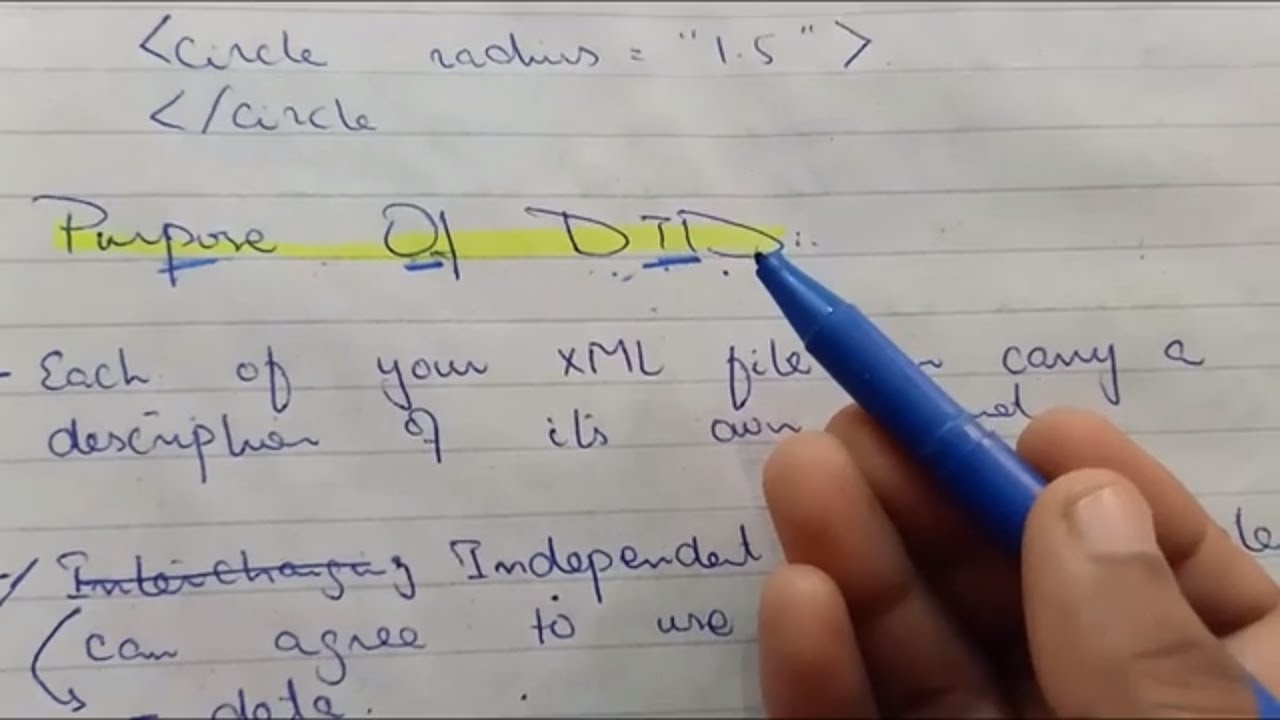 <circle radius = "1.5">
</circle
Purpose Of DTD :.
- Each of your XML file carry a
description of its own
Interchanging Independent
can agree to use
- data.